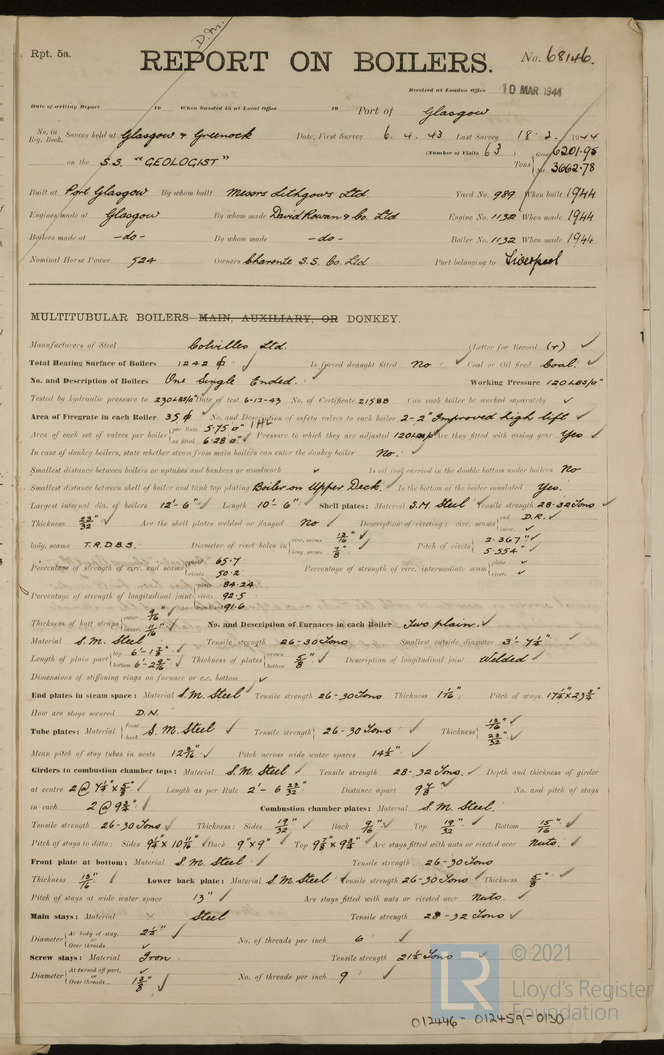 D.N.
Rpt. 5a.
REPORT ON BOILERS.
No. 68146.
Received at London Office 10 MAR 1944
Date of writing Report 19 When handed in at Local Office 19 Port of Glasgow
No. in Reg. Book. Survey held at Glasgow & Greenock Date, First Survey 6.4.43 Last Survey 18.2.1944
(Number of Visits 63) Gross 6201.95
on the S.S. "GEOLOGIST" Tons Net 3662.78
Built at Port Glasgow By whom built Messrs Lithgows Ltd. Yard No. 989 When built 1944
Engines made at Glasgow By whom made David Rowan & Co. Ltd Engine No. 1132 When made 1944
Boilers made at -do- By whom made -do- Boiler No. 1132 When made 1944
Nominal Horse Power 524 Owners Charente S.S. Co. Ltd Port belonging to Liverpool
MULTITUBULAR BOILERS MAIN, AUXILIARY, OR DONKEY.
Manufacturers of Steel Colvilles Ltd. (Letter for Record (r)
Total Heating Surface of Boilers 1242 Is forced draught fitted No Coal or Oil fired Coal.
No. and Description of Boilers One Single Ended. Working Pressure 120 LBS/□"
Tested by hydraulic pressure to 230 LBS/□" Date of test 6-12-43 No. of Certificate 21588 Can each boiler be worked separately ✓
Area of Firegrate in each Boiler 35 No. and Description of safety valves to each boiler 2-2" Improved high lift
Area of each set of valves per boiler per Rule 5.75 □" as fitted 6.28 □" Pressure to which they are adjusted 120 LBS/□" Are they fitted with easing gear Yes
In case of donkey boilers, state whether steam from main boilers can enter the donkey boiler No.
Smallest distance between boilers or uptakes and bunkers or woodwork ✓ Is oil fuel carried in the double bottom under boilers No
Smallest distance between shell of boiler and tank top plating Boiler on Upper Deck. Is the bottom of the boiler insulated Yes.
Largest internal dia. of boilers 12'-6" Length 10'-6" Shell plates: Material S.M. Steel Tensile strength 28-32 Tons
Thickness 23/32" Are the shell plates welded or flanged No Description of riveting: circ. seams end D.R. inter. ✓
long. seams T.R.D.B.S. Diameter of rivet holes in circ. seams 13/16" long. seams 7/8" Pitch of rivets 2.367" 5.554"
Percentage of strength of circ. end seams plate 65.7 rivets 50.2 Percentage of strength of circ. intermediate seam plate ✓ rivets ✓
Percentage of strength of longitudinal joint 84.24 rivets 92.5 91.6
Thickness of butt straps outer 9/16" inner 11/16" No. and Description of Furnaces in each Boiler Two plain.
Material S.M. Steel Tensile strength 26-30 Tons Smallest outside diameter 3'-7½"
Length of plain part top 6'-1 bottom 6'-2 Thickness of plates crown bottom 5/8" Description of longitudinal joint Welded
Dimensions of stiffening rings on furnace or c.c. bottom ✓
End plates in steam space: Material S.M. Steel Tensile strength 26-30 Tons Thickness 1 1/16" Pitch of stays
How are stays secured D.N.
Tube plates: Material front back S.M. Steel Tensile strength 26-30 Tons Thickness 13/16" 23/32"
Mean pitch of stay tubes in nests Pitch across wide water spaces 14½"
Girders to combustion chamber tops: Material S.M. Steel Tensile strength 28-32 Tons. Depth and thickness of girder
at centre Length as per Rule 2'-6 23/32" Distance apart 9 7/8" No. and pitch of stays
in each 2 @ 9¾" Combustion chamber plates: Material S.M. Steel.
Tensile strength 26-30 Tons Thickness: Sides 19/32" Back 9/16" Top 19/32" Bottom 15/16"
Pitch of stays to ditto: Sides Back 9" x 9" Top Are stays fitted with nuts or riveted over Nuts.
Front plate at bottom: Material S.M. Steel Tensile strength 26-30 Tons
Thickness 13/16" Lower back plate: Material S.M. Steel Tensile strength 26-30 Tons Thickness 5/8"
Pitch of stays at wide water space 13" Are stays fitted with nuts or riveted over Nuts.
Main stays: Material Steel Tensile strength 28-32 Tons
Diameter At body of stay, or Over threads 2½" No. of threads per inch 6
Screw stays: Material Iron Tensile strength 21½ Tons
Diameter At turned off part, or Over threads No. of threads per inch 9
012446-012459-0130
LR
© 2021
Lloyd's Register
Foundation